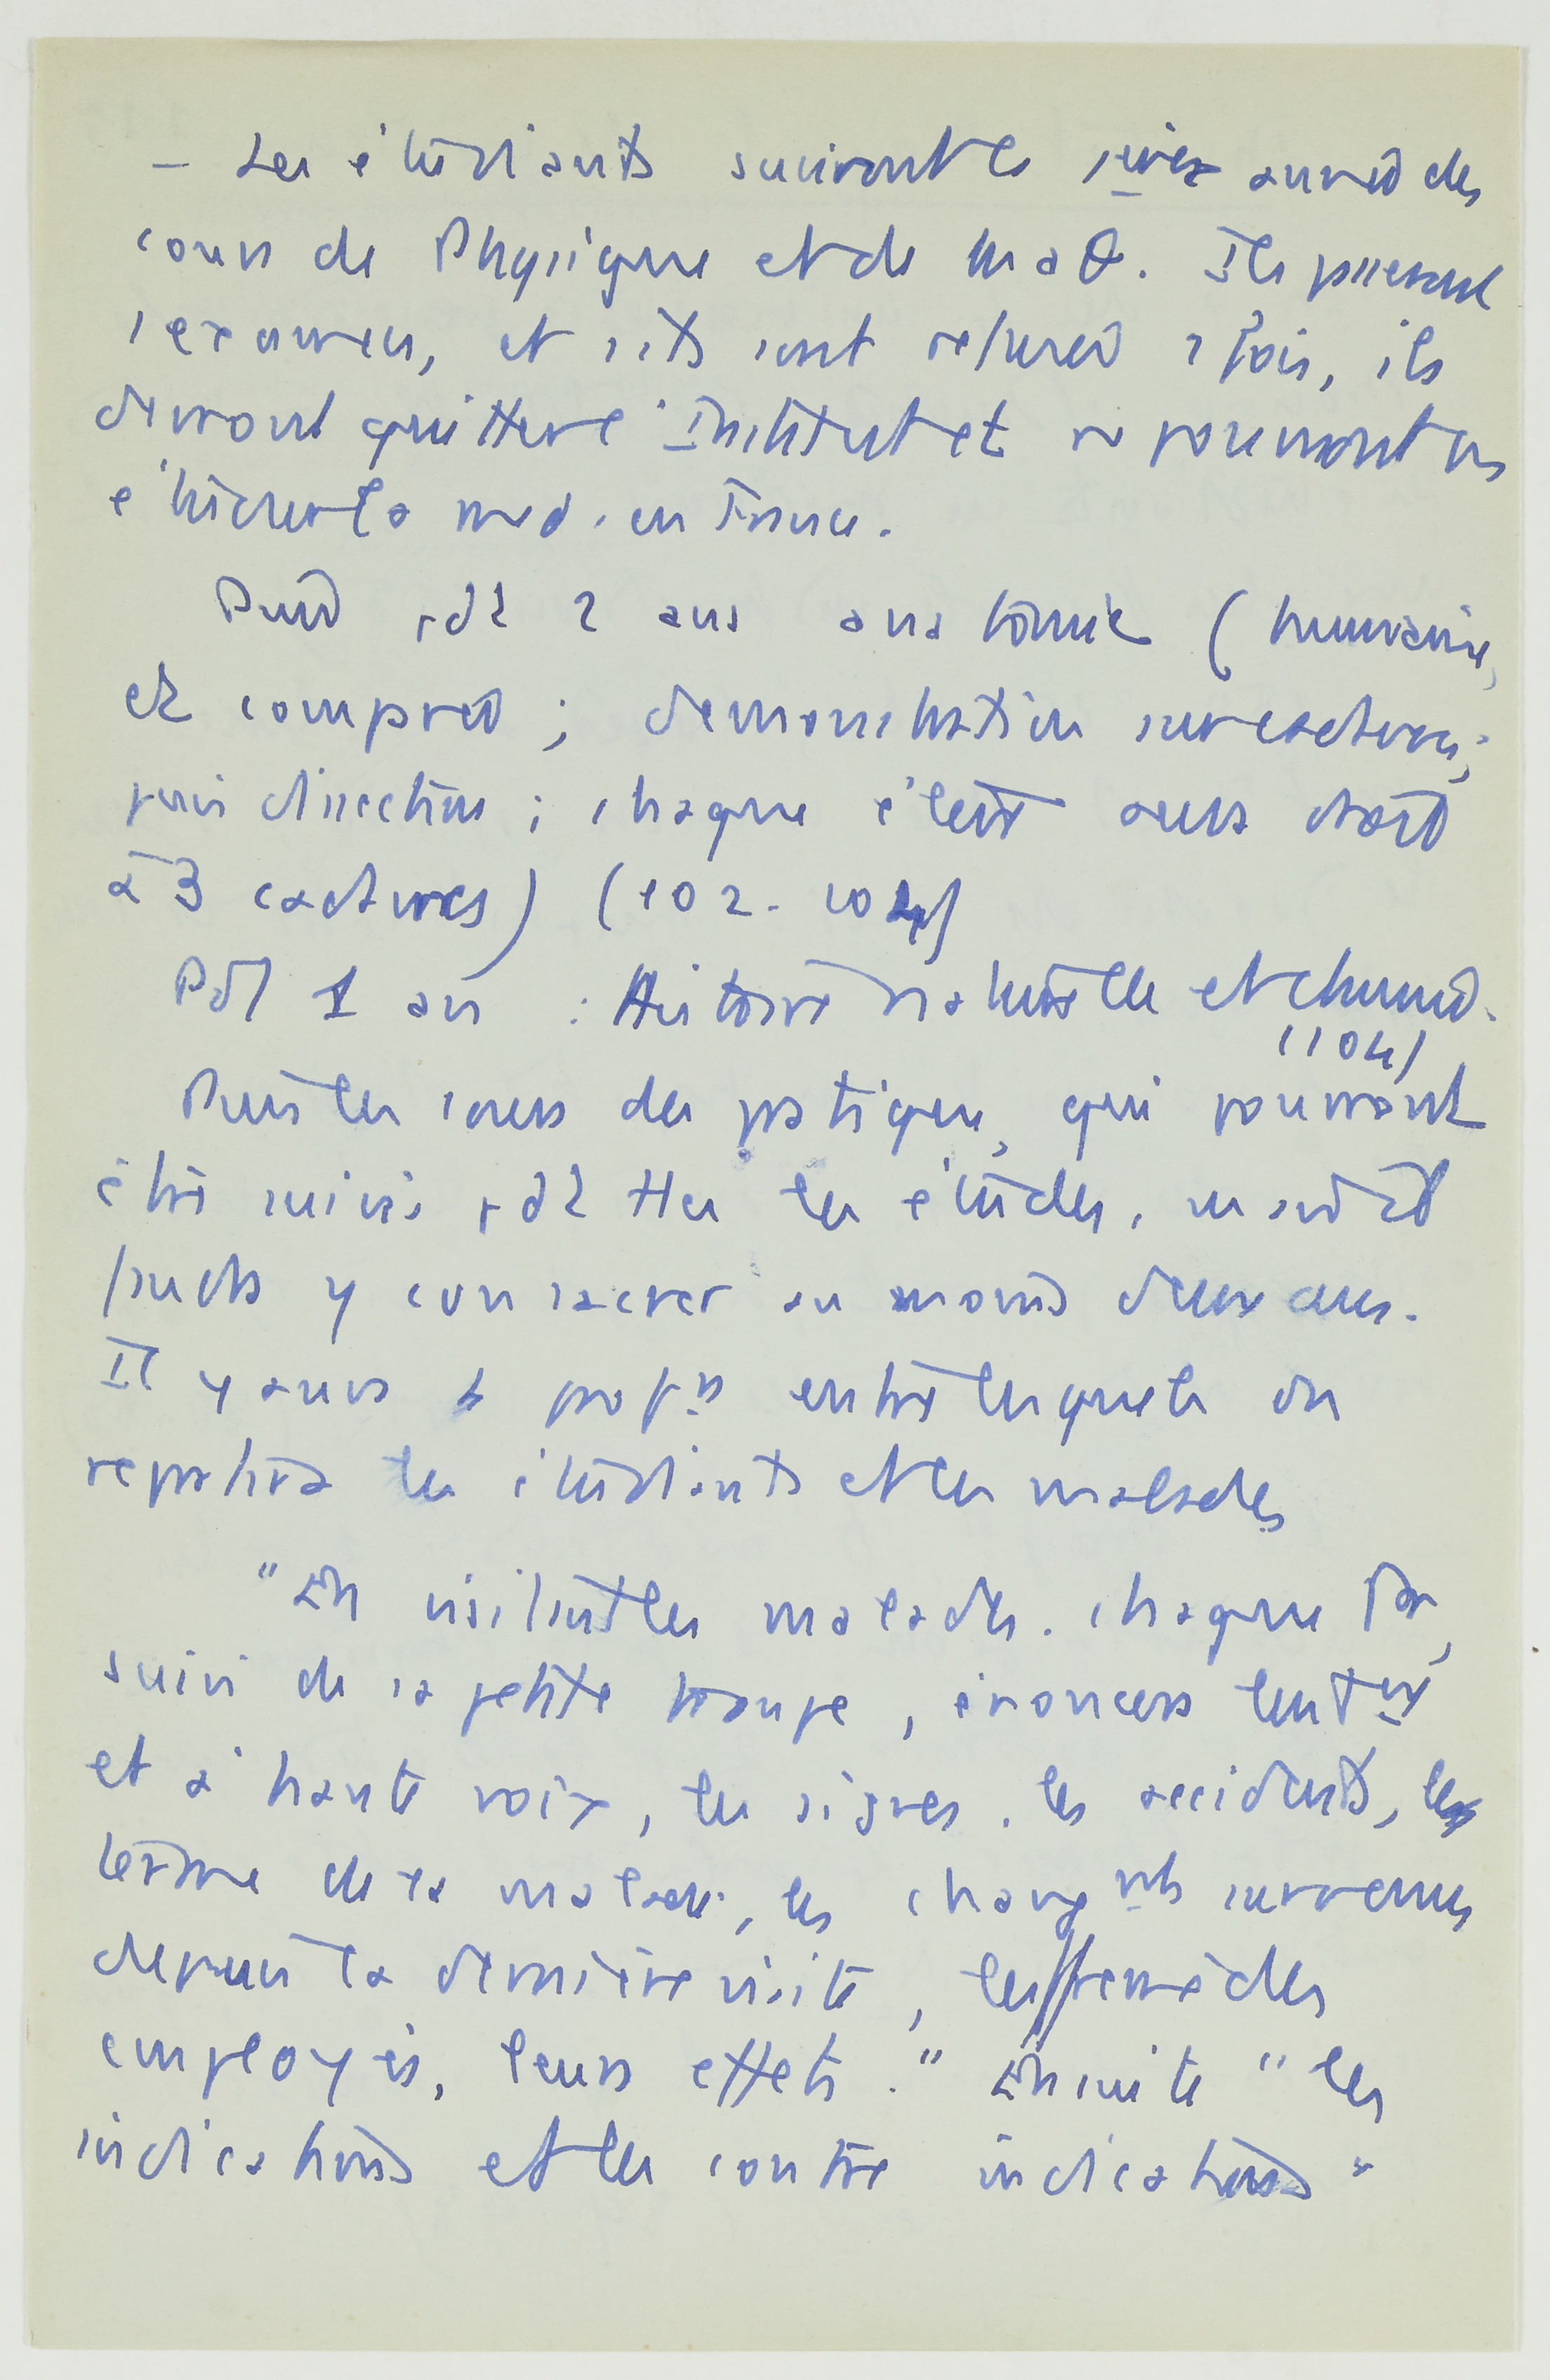 - Les étudiants suivront les 1ères années des
cours de Physique et de Maθ. Ils passeront
1 examen, et s'ils sont refusés 2 fois, ils
devront quitter l'Institut et ne pourront pas
étudier la méd. en France.
Puis pdt 2 ans anatomie (humaine,
et comparée ; démonstration sur cadavres ;
puis dissection ; chaque élève aura droit
à 3 cadavres) (102-104)
Pdt 1 an : Histoire naturelle et chimie.
(104)
Puis les cours de pratique, qui pourront
être suivis pdt ttes les études,
faudra y consacrer au moins deux ans.
Il y aura prof.rs entre lesquels on
répartira les étudiants et les malades
"En visitant les malades. chaque Pr,
suivi de sa petite troupe, énoncera lentemt
et à haute voix, les signes. les accidents, le
terme de la maladie, les changmts survenus
depuis la dernière visite, les remèdes
employés, leurs effets." Ensuite "les
indications et les contre indications"